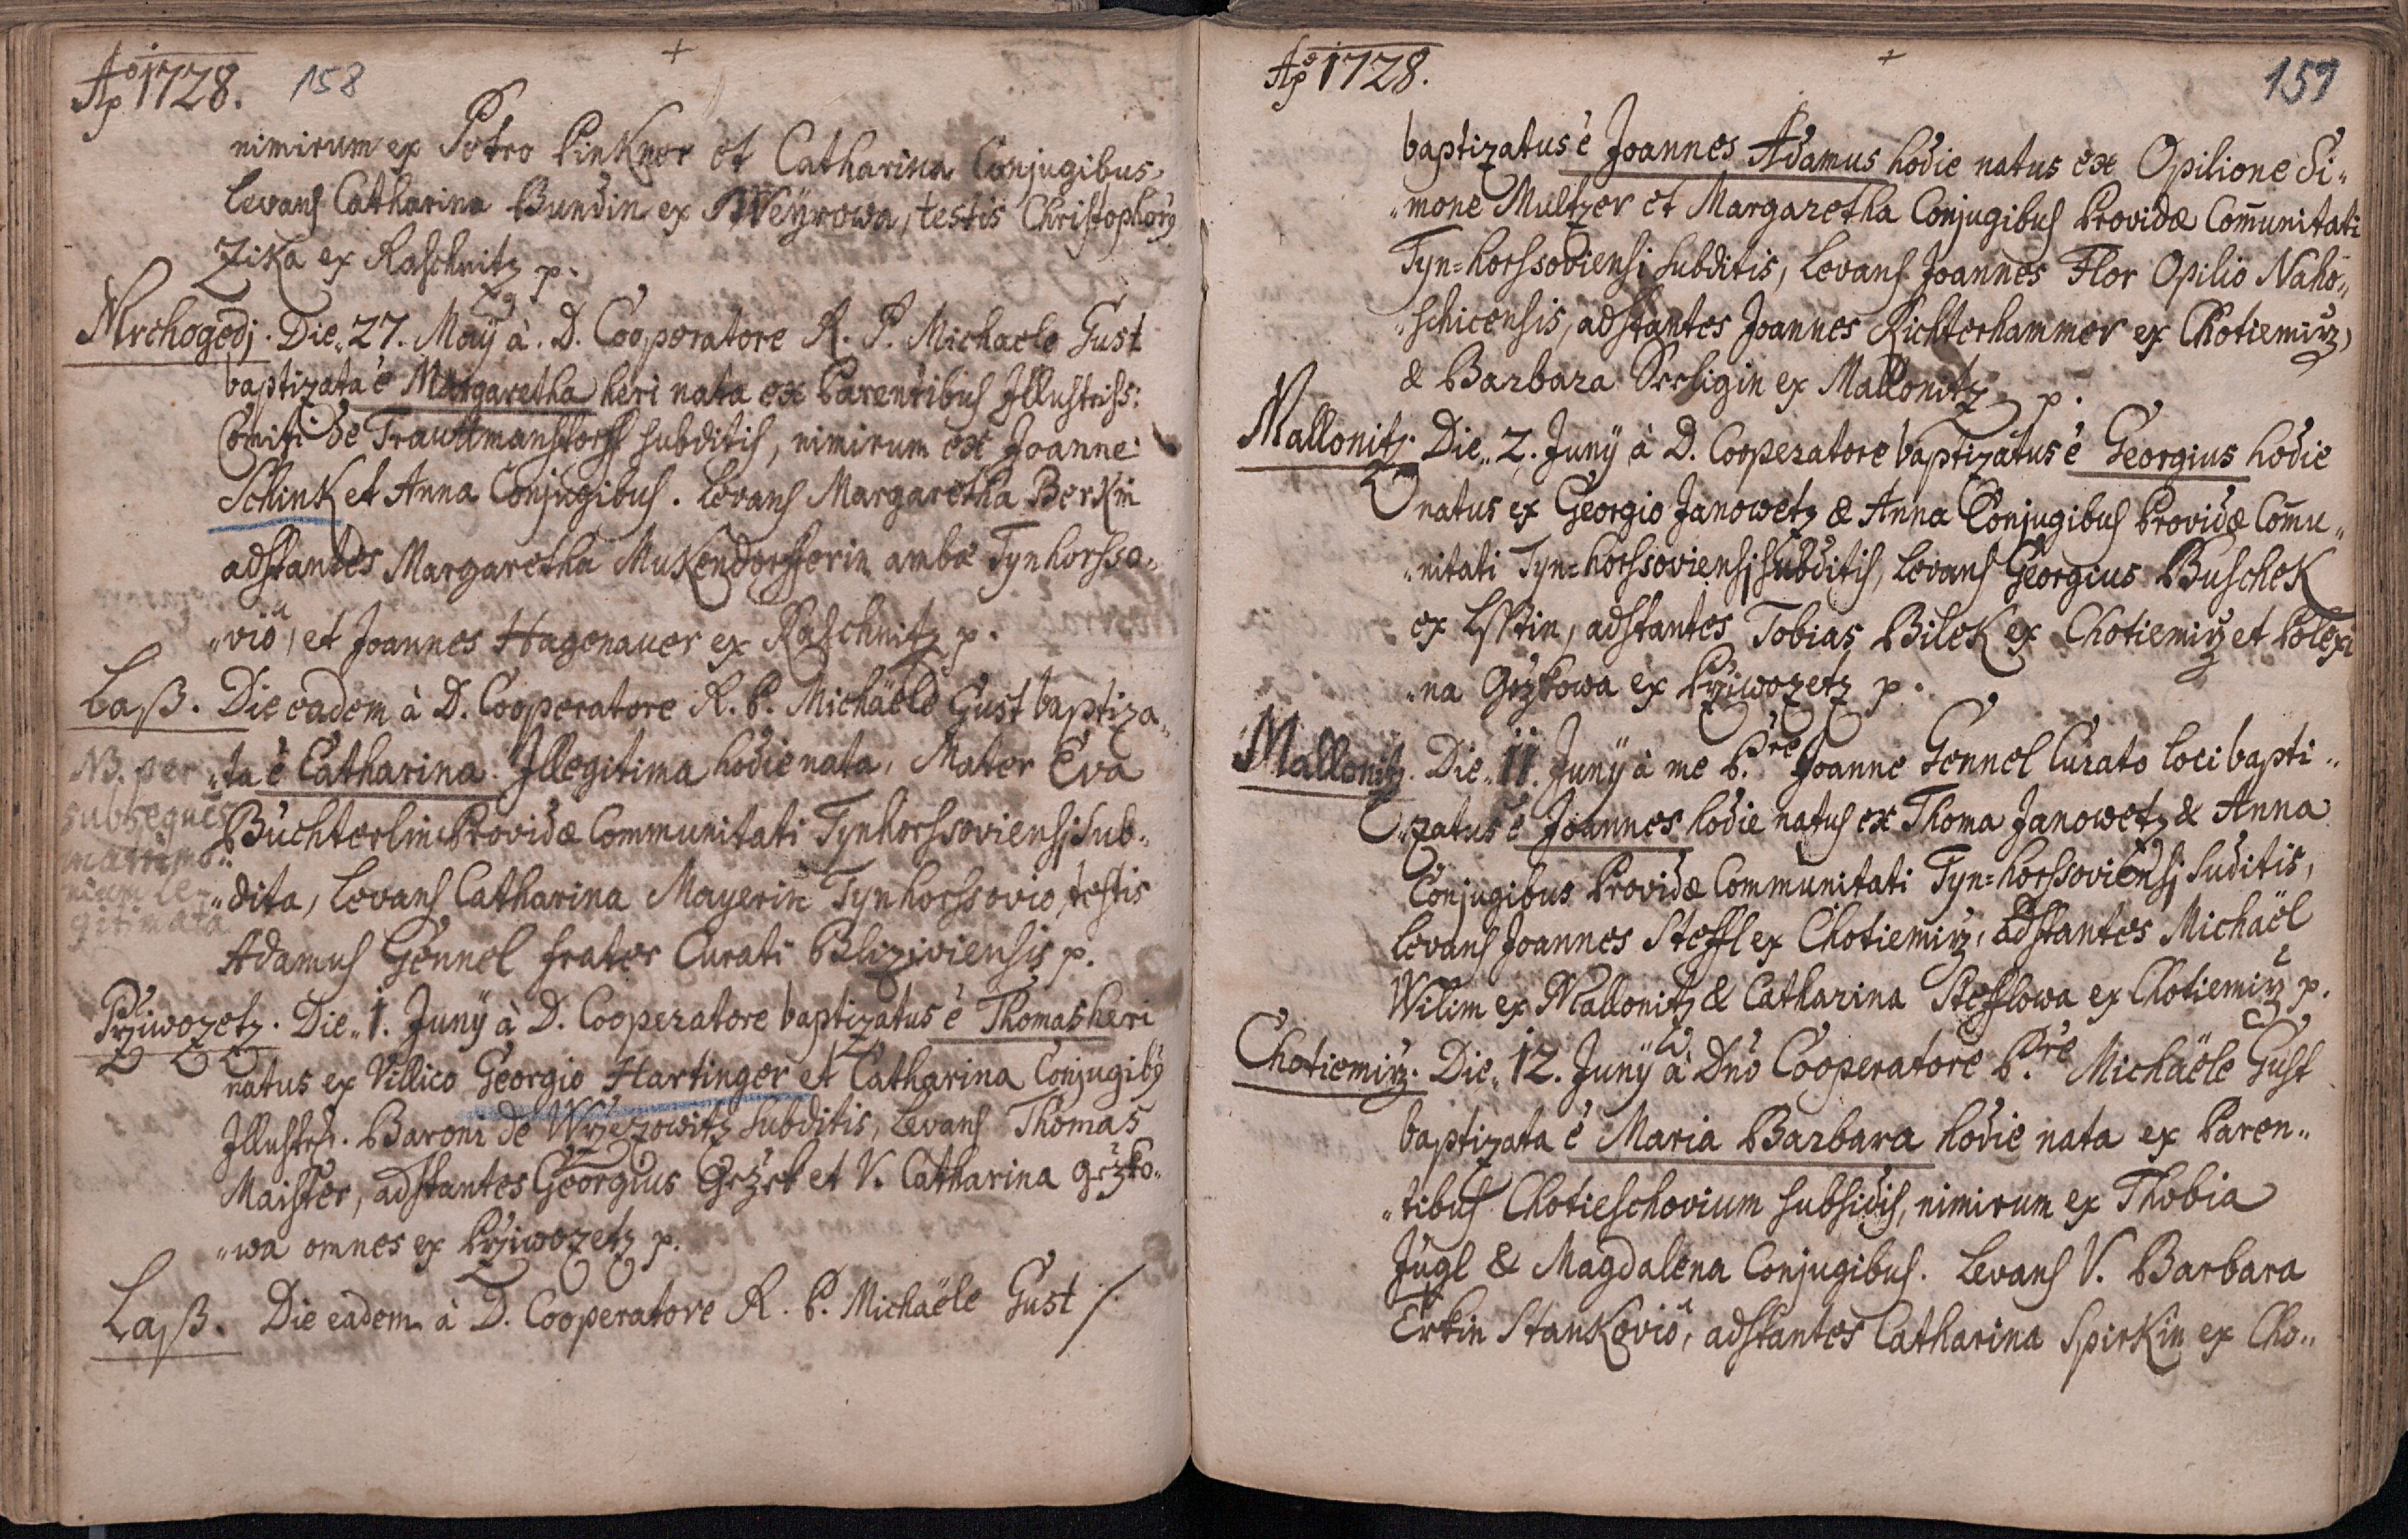 Aō 1728. 158
nimirum ex Petro Pinkner et Catharina Conjugibus,
Levans Catharina Bundin ex Weyrowa, testis Christophorq
Zika ex Raschnitz p.
Mrchogedj. Die„ 27. Maÿ à D. Cooperatore R. P. Michaele Gust
baptizata ē Margaretha heri nata ex Parentibus Illustriss:
Comiti de Trauttmanstorff subditis, nimirum ex Joanne
Schink et Anna Conjugibus. Levans Margaretha Berkin
adstantes Margaretha Mukendorfferin ambæ Tynhorsso„
„viō, et Joannes Hagenauer ex Raschnitz p.
Laß. Die eadem à D. Cooperatore R. P. Michaële Gust baptiza„
„ta ē Catharina Illegitima hodie nata, Mater Eva
Büchterlin Providæ Communitati Tynhorssoviensi sub„
„dita, Levans Catharina Mayerin Tynhorssovio, testis
Adamus Gennel frater Curati Bliziviensis p.
NB. per
subsequēs
matrimo„
nium le„
gitimata
Prziwozetz. Die„ 1. Junÿ à D. Cooperatore baptizatus ē Thomas heri
natus ex Villico Georgio Hartinger et Catharina Conjugibq
Illustrss. Baroni de Wrzezowitz subditis, Levans Thomas
Maister, adstantes Georgius Grzek et V. Catharina grzko„
„wa omnes ex Przivozetz p.
Laß. Die eadem à D. Cooperatore R. P. Michaële Gust /.
Aō 1728. 159
baptizatus ē Joannes Adamus hodie natus ex Opilione Si„
„mone Multzer et Margaretha Conjugibus Providæ Com̄unitati
Tyn=horssoviensi subditis, Levans Joannes Flor Opilio Naho„
„schicensis, adstantes Joannes Richterhammer ex Chotiemirz,
& Barbara Seeligin ex Mallonitz p.
Mallonitz. Die„ 2. Junÿ à D. Cooperatore baptizatus ē Georgius hodie
natus ex Georgio Janowetz & Anna Conjugibus Providæ Com̄u„
„nitati Tyn=horssoviensi subditis, Levans Georgius Buschek
ex Lsstin, adstantes Tobias Bilek ex Chotiemirz et Polexi
„na Grzkowa ex Przivozetz p.
Mallonitz. Die„ 11. Junÿ à me P.re Joanne Gennel Curato loci bapti„
„zatus ē Joannes hodie natus ex Thoma Janowetz & Anna
Conjugibus Providæ Communitati Tyn=horssoviensi suditis,
Levans Joannes Steffl ex Chotiemirz, adstantes Michaël
Wilim ex Mallonitz & Catharina Stefflowa ex Chotiemirz p.
Chotiemirz. Die„ 12. Junÿ à Dn̄o Cooperatore P.re Michaële Gust
baptizata ē Maria Barbara hodie nata ex Paren„
„tibus Chotieschovium subsidis, nimirum ex Thobia
Jugl & Magdalena Conjugibus. Levans V. Barbara
Erkin Stankoviō, adstantes Catharina Spirkin ex Cho„